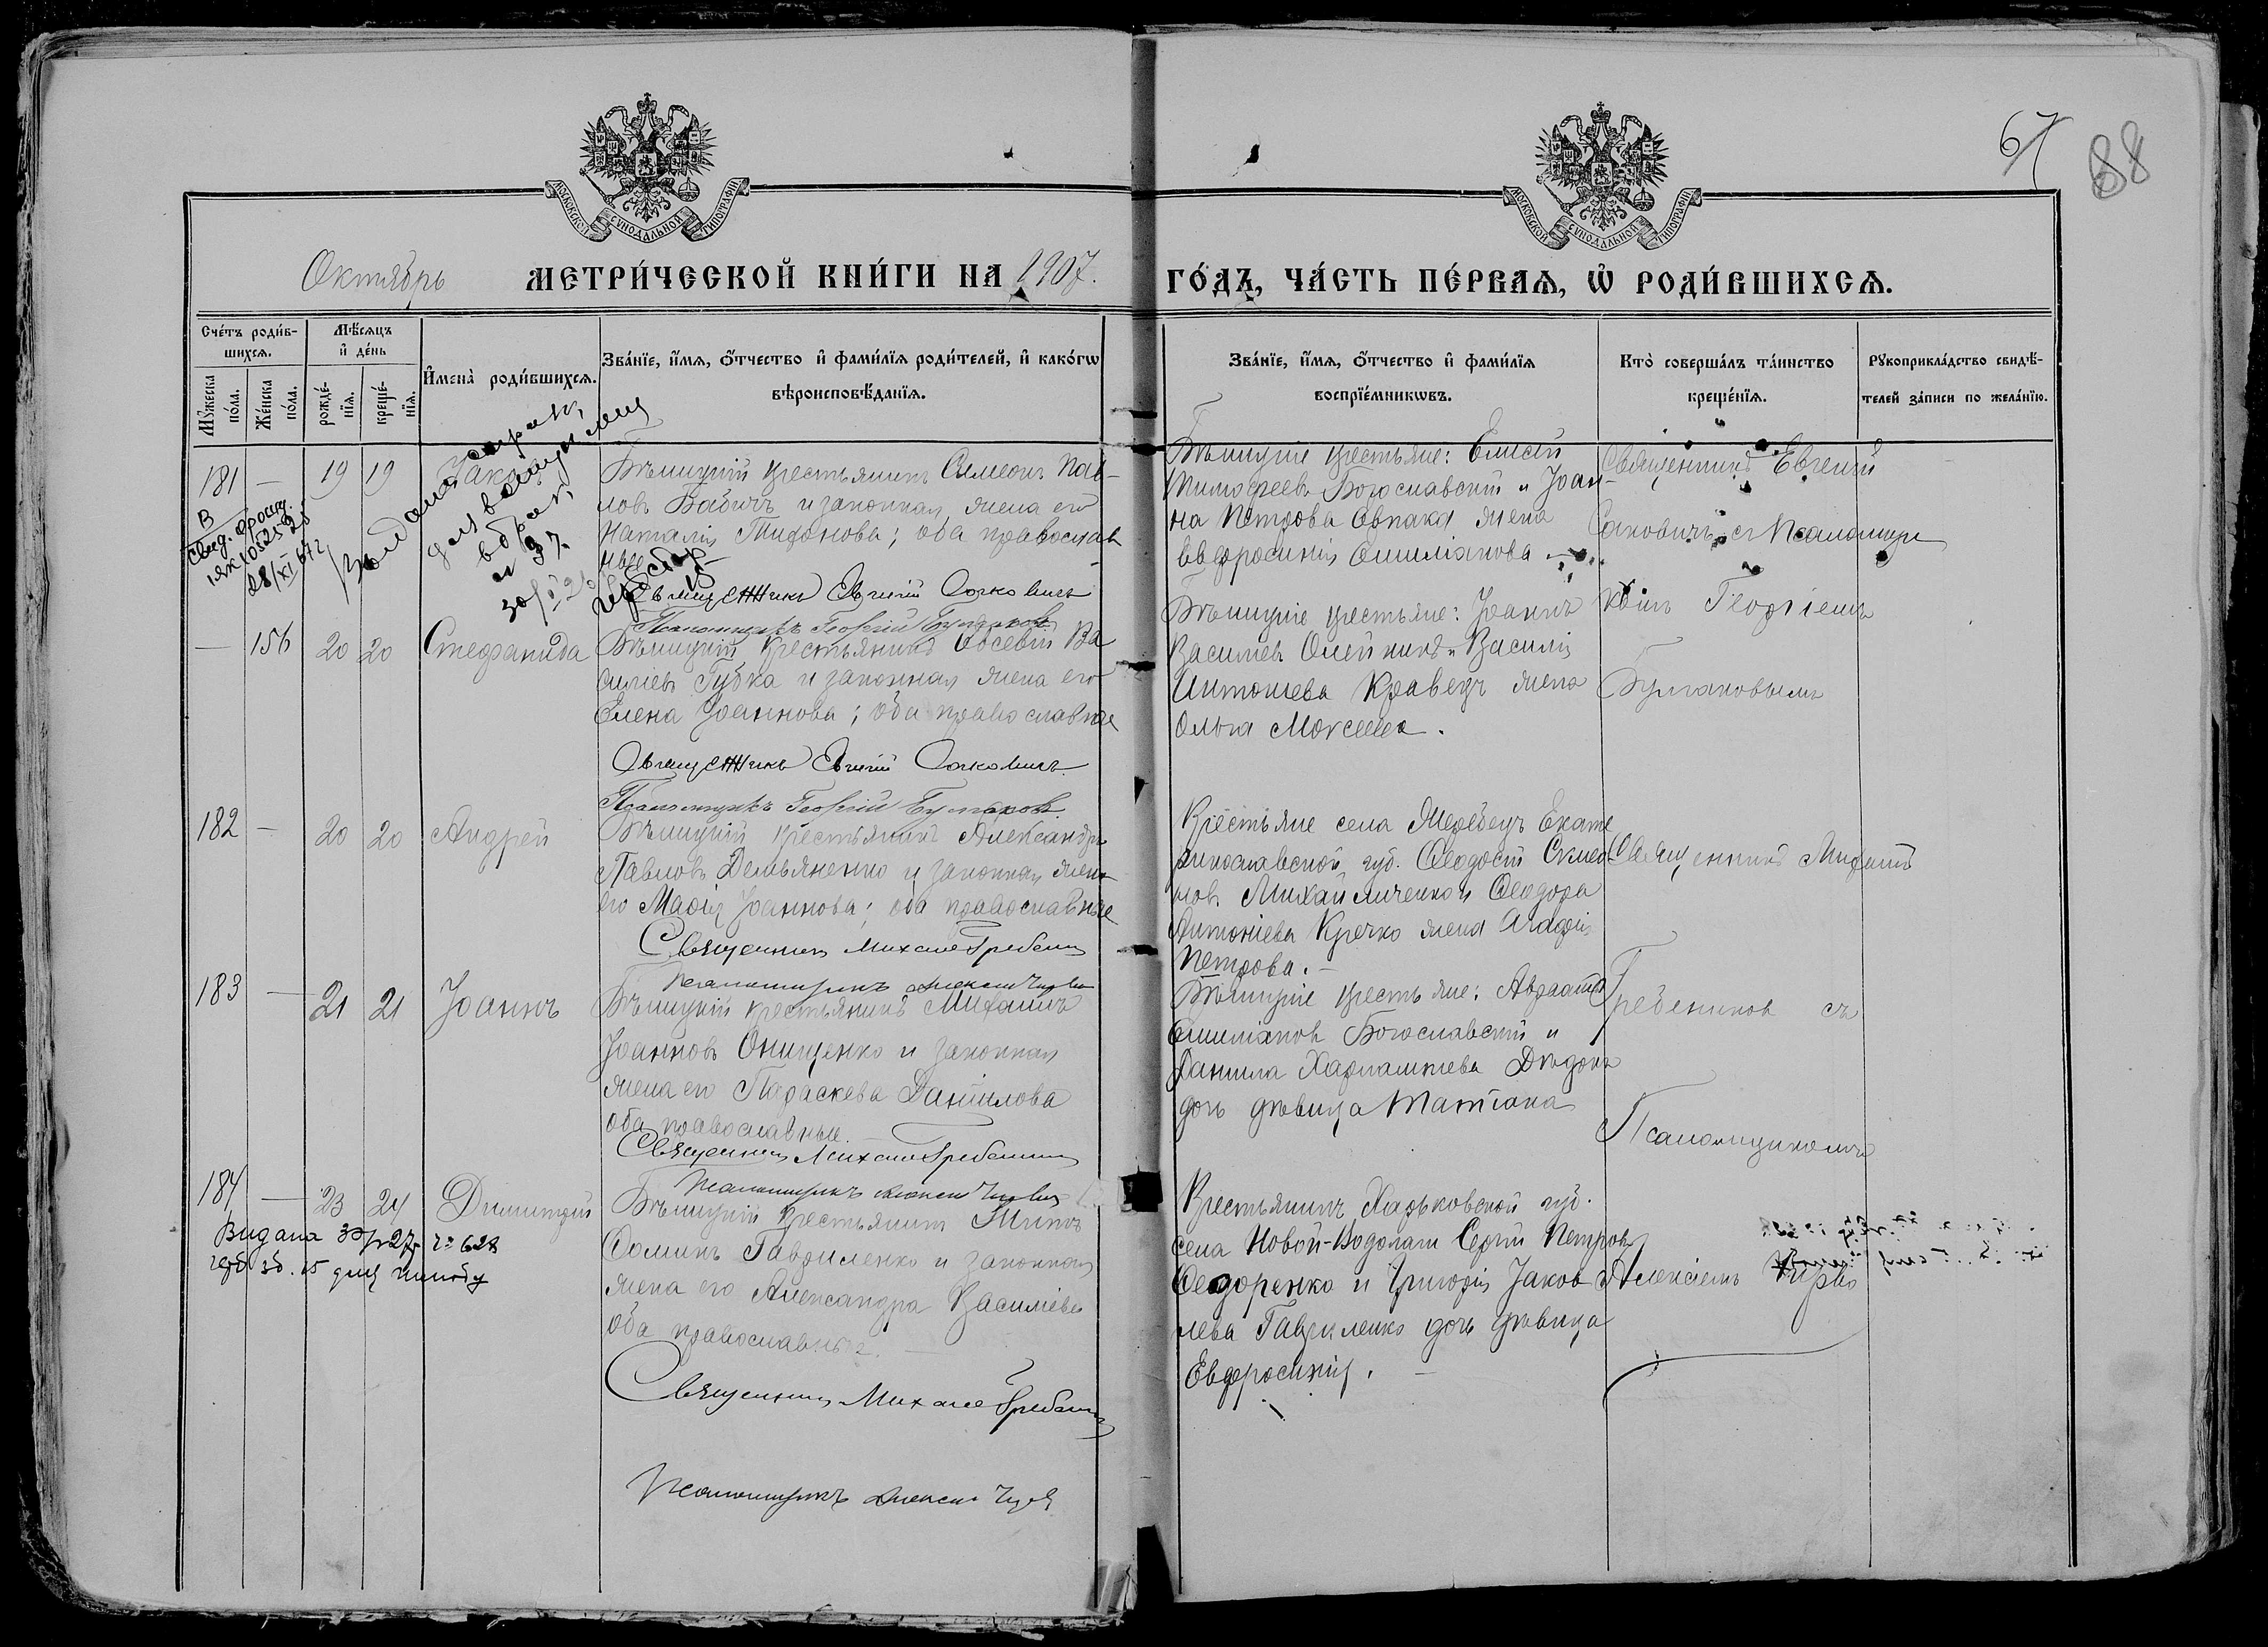 67
88
МОСКОВСКОЙ СѴНОДАЛЬНОЙ ТИПОГРАФІИ
МОСКОВСКОЙ СѴНОДАЛЬНОЙ ТИПОГРАФІИ
Октябрь МЕТРИ́ЧЕСКОЙ КНИ́ГИ НА 1907. ГО́ДЪ, ЧА́СТЬ ПЕ́РВАѦ, Ѡ҆ РОДИ́ВШИХСѦ.
Сче́тъ роди́в-
шихсѧ.
Мꙋ́жеска по́ла.
Же́нска по́ла.
Мѣ́сѧцъ
и҆ де́нь
рожде́-
нїѧ.
креще́-
нїѧ.
И҆мена̀ роди́вшихсѧ.
Зва́нїе, и҆́мѧ, ѻ҆́тчество и҆ фами́лїѧ роди́телей, и҆ како́гѡ
вѣроисповѣ́данїѧ.
Зва́нїе, и҆́мѧ, ѻ҆́тчество и҆ фами́лїѧ
воспрїе́мникѡвъ.
Кто̀ соверша́лъ та́инство
креще́нїѧ.
Рꙋкоприкла́дство свидѣ́-
телей за́писи по жела́нїю.
181 — 19 19 Іаковъ
Бѣлицкій крестьянинъ Симеонъ Пав-
ловъ Бабичъ и законная жена его
Наталія Тихонова; оба православ
ные
Священникъ Евгеній Саковичъ
Псаломщикъ Георгій Булгаковъ
Бѣлицкіе крестьяне: Елисей
Тимофеевъ Богославскій и Іоан-
на Петрова жена
Евфросинія Емиліанова
Священникъ Евгеній
Саковичъ съ Псаломщи
комъ Георгіемъ
Булгаковымъ
— 156 20 20 Стефанида
Бѣлицкій крестьянинъ Евсевій Ва
силіевъ Губка и законная жена его
Елена Іоаннова; оба православные
Священникъ Евгеній Саковичъ
Псаломщикъ Георгій Булгаковъ
Бѣлицкіе крестьяне: Іоаннъ
Василіевъ Олейникъ и Василія
Антоніева Кравецъ жена
Ольга Моисеева.
182 — 20 20 Андрей
Бѣлицкій крестьянинъ Александръ
Павловъ Демьяненко и законная жена
его Марія Іоаннова; оба православные
Священникъ Михаилъ Гребениковъ
Псаломщикъ Алексій
Крестьяне села Жеребецъ Екате
ринославской губ. Феодосій Симео-
новъ Михайличенко и Феодора
Антоніева Кречко жена Агафія
Петрова.
Священникъ Михаилъ
Гребениковъ съ
Псаломщикомъ
Алексіемъ
183 — 21 21 Іоаннъ
Бѣлицкій крестьянинъ Михаилъ
Іоанновъ Онищенко и законная
жена его Параскева Даніилова
оба православные.
Священникъ Михаилъ Гребениковъ
Псаломщикъ Алексій
Бѣлицкіе крестьяне: Авраамъ
Емиліановъ Богославскій и
Даніила Харлампіева
дочь дѣвица Татіана
184 — 23 24 Димитрій
Бѣлицкій крестьянинъ
Фоминъ Гавриленко и законная
жена его Александра Василіева
оба православные.
Священникъ Михаилъ Гребениковъ
Псаломщикъ Алексій
Крестьянинъ Харьковской губ.
села Новой-Водолаги Сергій Петровъ
Федоренко и Григорія Іаков
лева Гавриленко дочь дѣвица
Евфросинія.